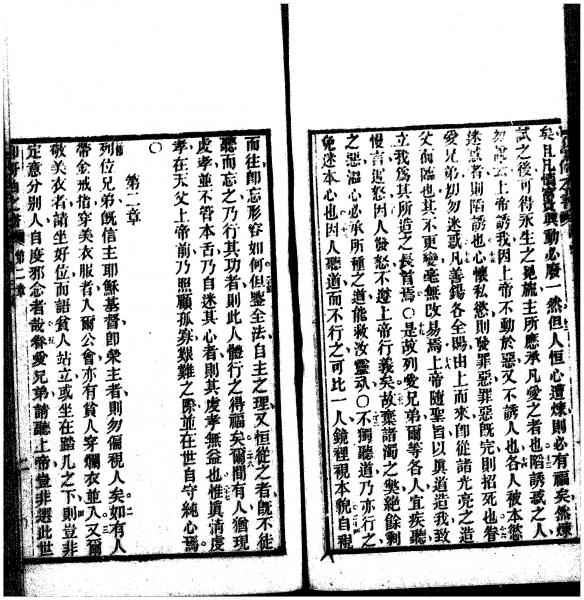 矣且凡憤富貴輿動必廢一然但人恒心遭煉則必有福矣然煉
試之後可得永生之冕旒主所應承凡愛之者也陷誘惑之人
勿謂云上帝誘我因上帝不動於惡又不誘人也各人被本慾
迷惑者則陷誘也心懷私慾則發罪惡罪惡既完則招死也眷
愛兄弟切勿迷惑凡善錫各全賜由上而來即從諸光亮之造
父而臨也其不更變毫無改易焉上帝隨聖旨以眞道造我致
立我爲其所造之長首焉〇是故列愛兄弟爾等各人宜疾聽
慢言遲怒因人發怒不遵上帝行義矣故棄諸濁之與絕餘剩
之惡溢心必承所種之道能救汝靈矣〇不獨聽道乃亦行之
免迷本心也因人聽道而不行之可比一人鏡裡視本貌自視
而往即忘形容如何但鑒全法自主之理又恒從之者既不徒
聽而忘之乃行其功者則此人體行之得福矣爾間有人猶現
虔孝並不管本舌乃自迷其心者則其虔孝無益也惟眞清虔
孝在天父上帝前乃照顧孤寡艱難之際並在世自守純心焉
〇
第二章
列位兄弟既信主耶穌基督即榮主者則勿偏視人矣如有人
帶金戒指穿美衣服者入爾公會亦有貧人穿爛衣並入又爾
敬美衣者請坐好位而語貧人站立或坐在踏几之下則豈非
定意分別人自度邪念者哉眷愛兄弟請聽上帝豈非選此世
第二章